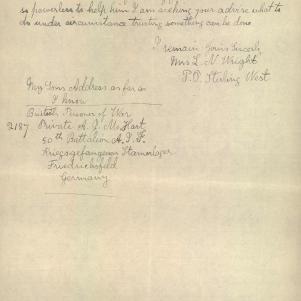 so powerless to help him I am asking your advise what to
do under circumstance trusting something can be done
I remain Yours Sincerly
Mrs L. N Wright
P.O. Stirling West
My Sons Address as far as
I know
British Prisoner of War
2187 Private A. J. McHart
50th Battalion A.I.F.
Kriegsgefangenen Stammlager
Friedrichsfeld
Germany